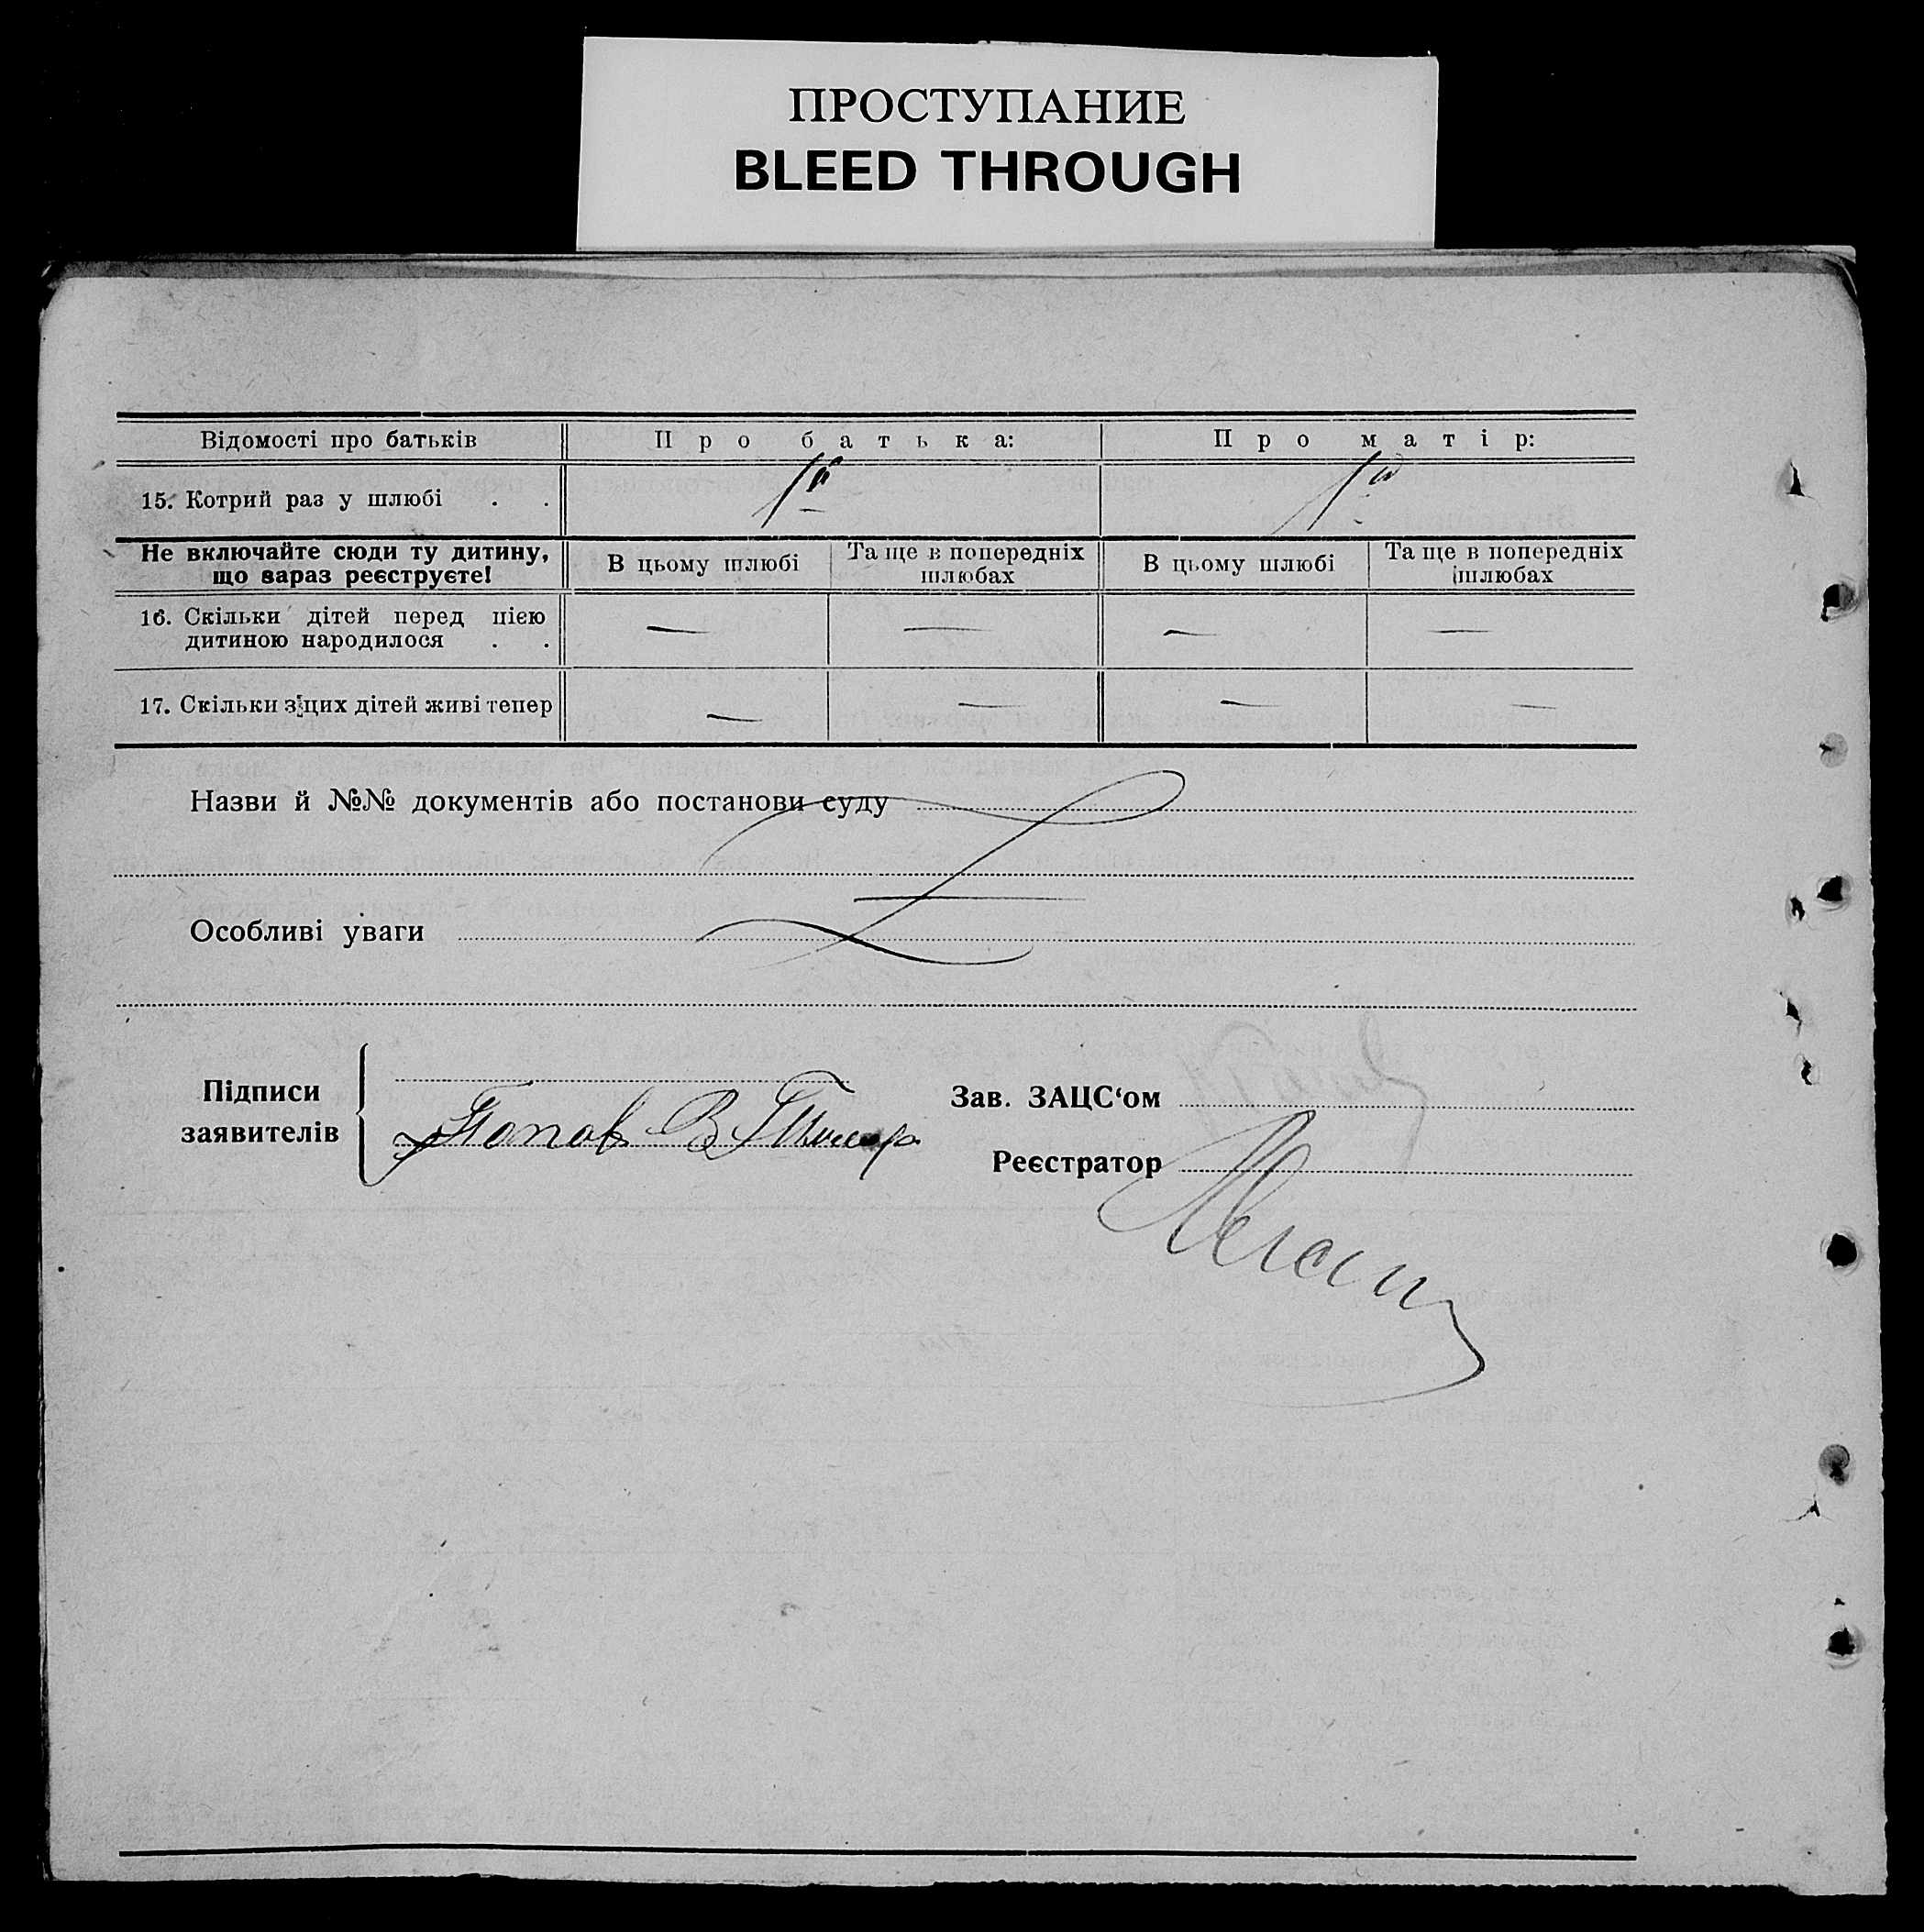 ПРОСТУПАНИЕ
BLEED THROUGH
Відомості про батьків Про батька: Про матір:
15. Котрий раз у шлюбі . . 1й 1й
Не включайте сюди ту дитину, що зараз реєструєте! В цьому шлюбі Та ще в попередніх шлюбах В цьому шлюбі Та ще в попередніх шлюбах
16. Скільки дітей перед цією дитиною народилося . . — — — —
17. Скільки з цих дітей живі тепер — — — —
Назви й №№ документів або постанови суду
Особливі уваги
Підписи заявителів
Попов В
Зав. ЗАЦС‘ом
Реєстратор